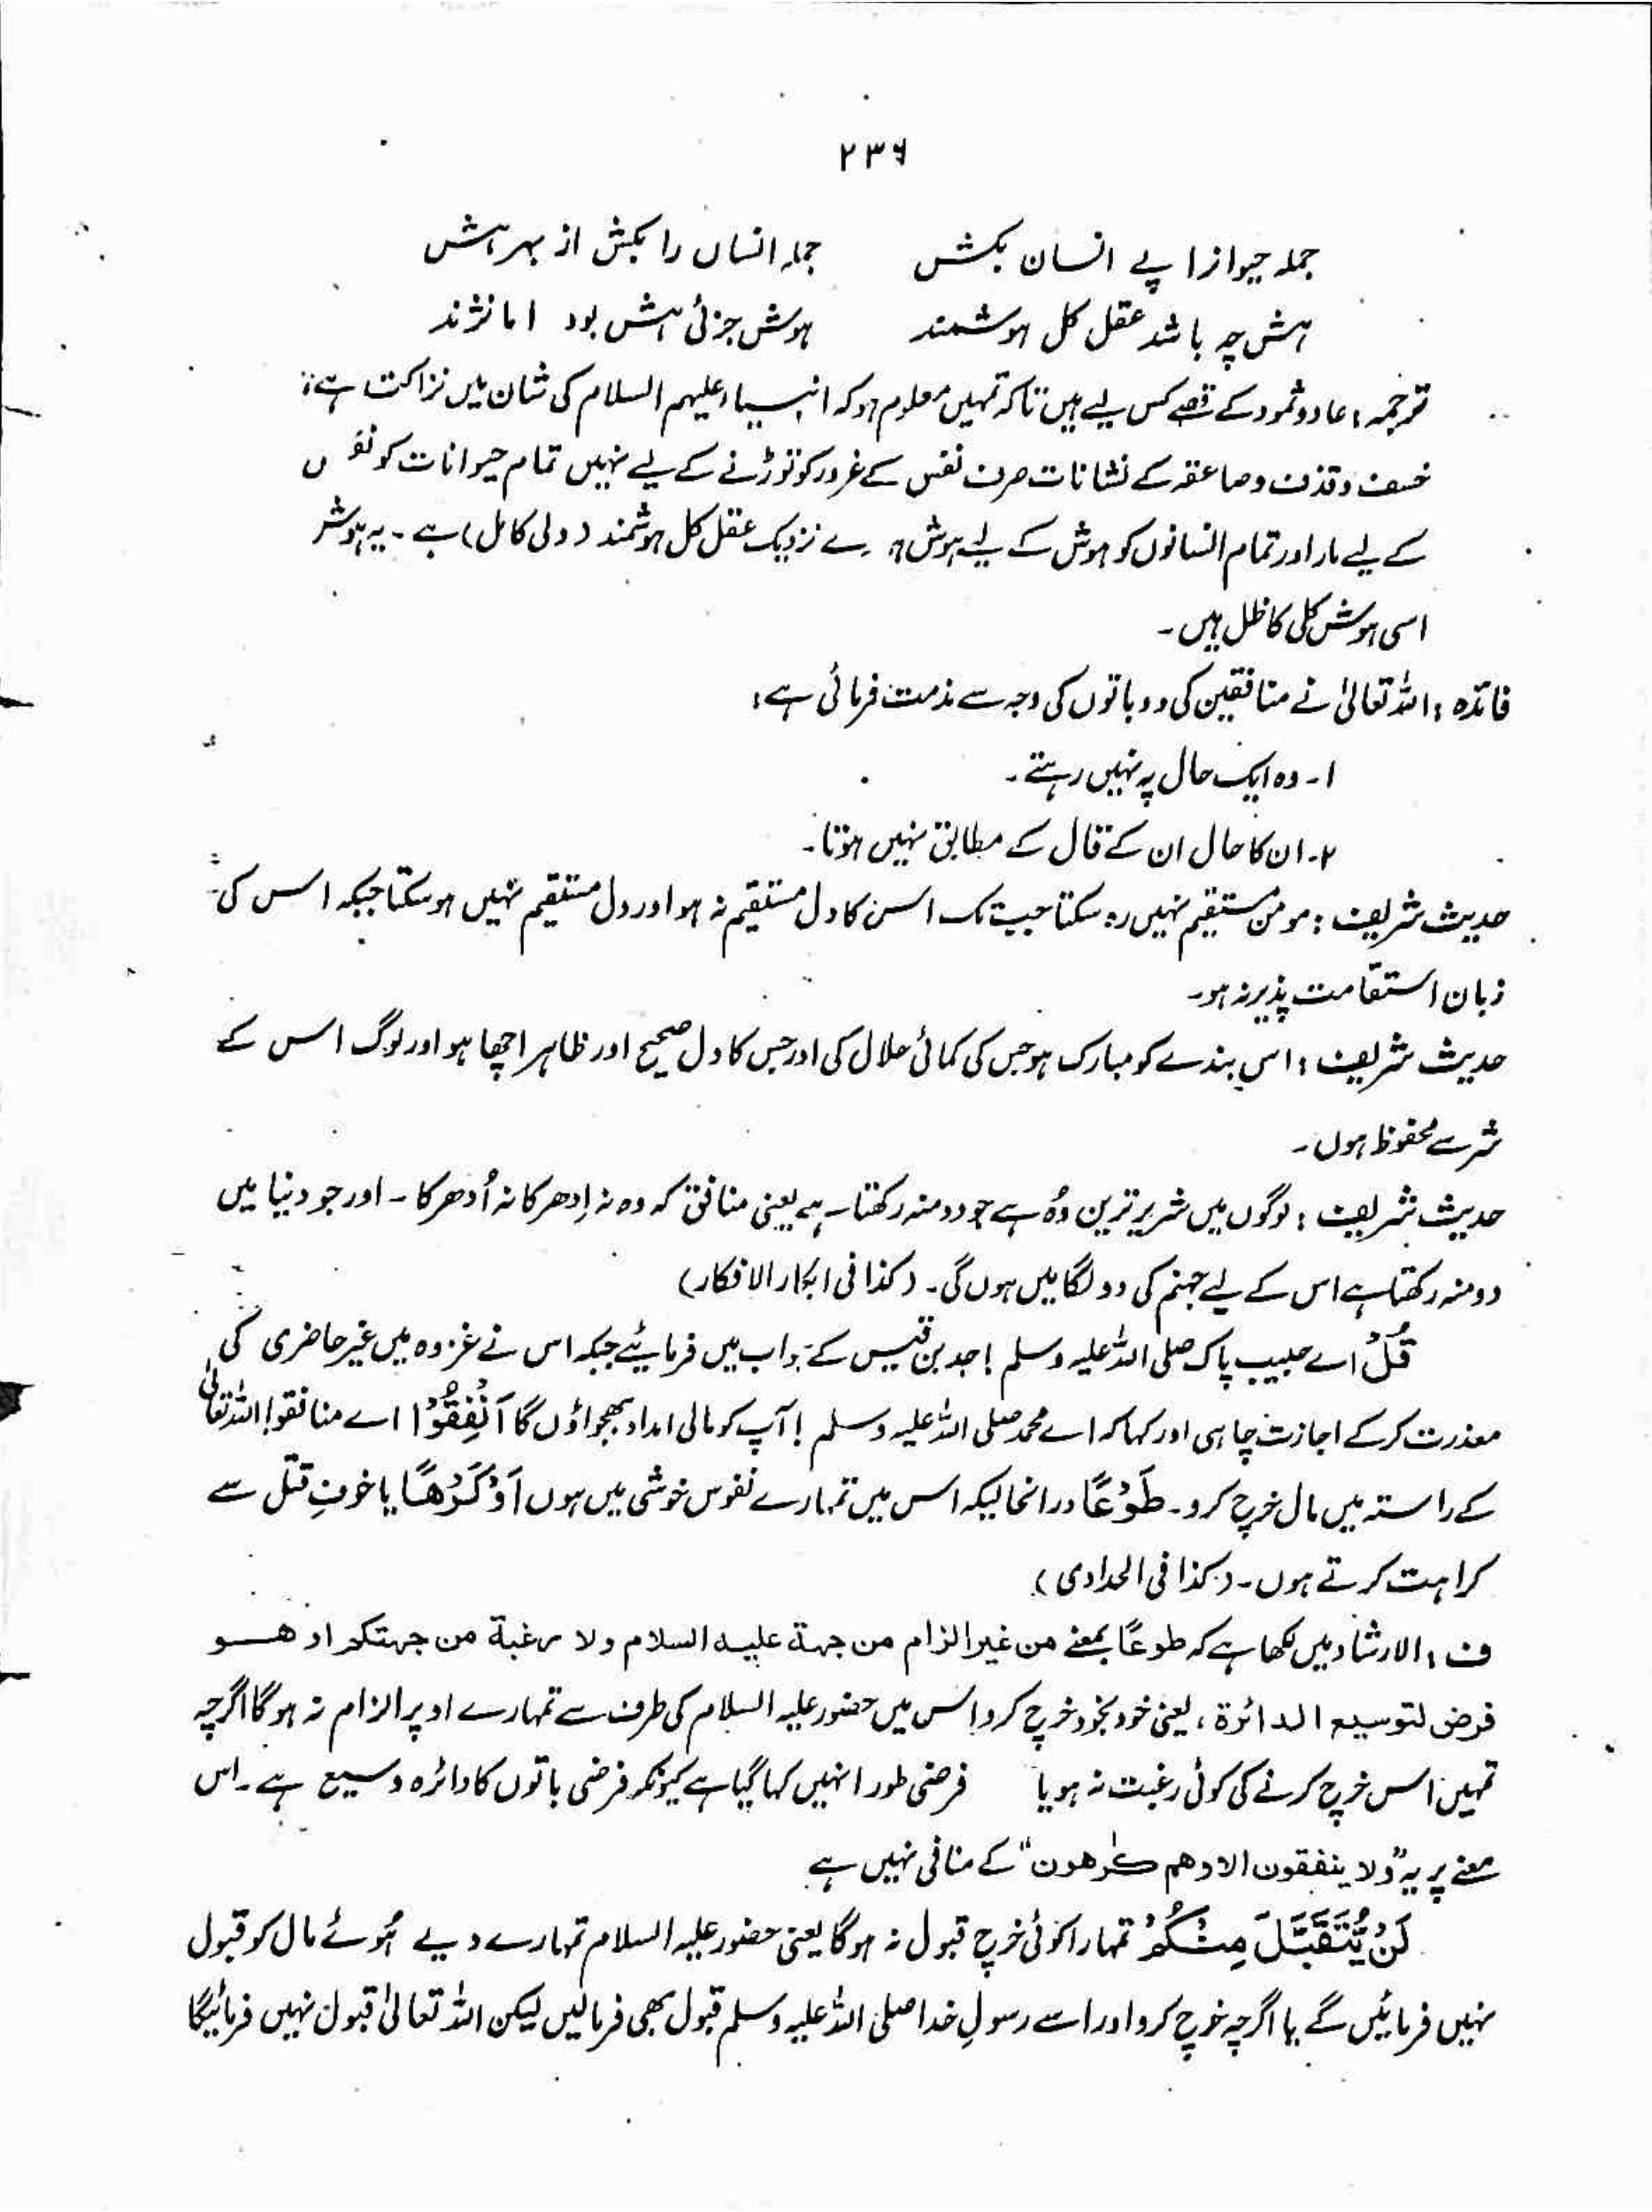 ۲۳۶
جملہ حیوانرا پے انسان بکش جملہ انساں را بکش از بہر ہش
ہش چہ باشد عقل کل ہوشمند ہوش جزئی ہش بود اما نژند
ترجمہ : عاد و ثمود کے قصے کس لیے ہیں تاکہ تمہیں معلوم ہو کہ انبیاء علیہم السلام کی شان میں نزاکت ہے
خسف و قذف و صاعقہ کے نشانات صرف نفس کے غرور کو توڑنے کے لیے نہیں تمام حیوانات کو
کے لیے مار اور تمام انسانوں کو ہوش کے لیے ہوش نزدیک عقل کل ہوشمند (ولی کامل) ہے ۔ یہ ہوش
اسی ہوش کلی کا ظل ہیں ۔
فائدہ : اللہ تعالیٰ نے منافقین کی دو باتوں کی وجہ سے مذمت فرمائی ہے :
۱ - وہ ایک حال پہ نہیں رہتے ۔
۲ - ان کا حال ان کے قال کے مطابق نہیں ہوتا ۔
حدیث شریف : مومن مستقیم نہیں رہ سکتا جب تک اس کا دل مستقیم نہ ہو اور دل مستقیم نہیں ہو سکتا جبکہ اس کی
زبان استقامت پذیر نہ ہو ۔
حدیث شریف : اس بندے کو مبارک ہو جس کی کمائی حلال کی اور جس کا دل صحیح اور ظاہر اچھا ہو اور لوگ اس کے
شر سے محفوظ ہوں ۔
حدیث شریف : لوگوں میں شریر ترین وُہ ہے جو دو منہ رکھتا ہے یعنی منافق کہ وہ نہ اِدھر کا نہ اُدھر کا ۔ اور جو دنیا میں
دو منہ رکھتا ہے اس کے لیے جہنم کی دو لگامیں ہوں گی ۔ (کذا فی ابکار الافکار)
قُلْ اے حبیب پاک صلی اللہ علیہ وسلم ! جد بن قیس کے جواب میں فرمائیے جبکہ اس نے غزوہ میں غیر حاضری کی
معذرت کر کے اجازت چاہی اور کہا کہ اے محمد صلی اللہ علیہ وسلم ! آپ کو مالی امداد بھجواؤں گا اَنْفِقُوْا اے منافقو! اللہ تعالیٰ
کے راستہ میں مال خرچ کرو ۔ طَوْعًا درانحالیکہ اس میں تمہارے نفوس خوشی میں ہوں اَوْ كَرْهًا یا خوفِ قتل سے
کراہت کرتے ہوں ۔ (کذا فی الحدادی)
ف : الارشاد میں لکھا ہے کہ طوعًا بمعنے من غیر الزام من جہۃ علیہ السلام ولا رغبۃ من جہتکم او ھو
فرض لتوسیع الدائرۃ ، یعنی خود بخود خرچ کرو اس میں حضور علیہ السلام کی طرف سے تمہارے اوپر الزام نہ ہوگا اگرچہ
تمہیں اس خرچ کرنے کی کوئی رغبت نہ ہو یا فرضی طور انہیں کہا گیا ہے کیونکر فرضی باتوں کا دائرہ وسیع ہے ۔ اس
معنے پر یہ ”ولا ینفقون الا وھم کٰرھون“ کے منافی نہیں ہے
لَنْ يُّتَقَبَّلَ مِنْكُمْ تمہارا کوئی خرچ قبول نہ ہوگا یعنی حضور علیہ السلام تمہارے دیے ہُوئے مال کو قبول
نہیں فرمائیں گے یا اگرچہ خرچ کرو اور اسے رسولِ خدا صلی اللہ علیہ وسلم قبول بھی فرمالیں لیکن اللہ تعالیٰ قبول نہیں فرمائیگا